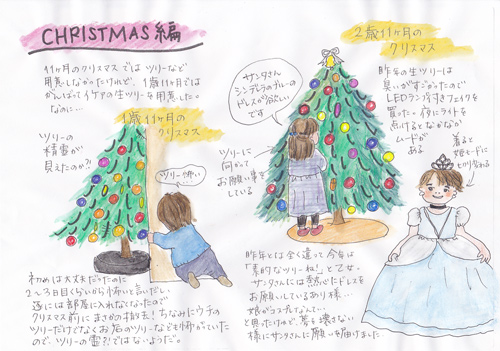 CHRISTMAS編
11ヶ月のクリスマスではツリーなど
用意しなかったけれど、1歳11ヶ月では
がんばってイケアの生ツリーを用意した。
なのに…
1歳11ヶ月の
クリスマス
ツリーの
精霊が
見えたのか!?
ツリー怖い…
初めは大丈夫だったのに
2〜3日目くらいから怖いと言いだし
遂には部屋に入れなくなったので
クリスマス前にまさかの撤去!ちなみにウチの
ツリーだけでなくお店のツリーなども怖がっていた
ので、ツリーの霊?!ではないようだ。
2歳11ヶ月の
クリスマス
サンタさん
シンデレラのブルーの
ドレスが欲しい
です
ツリーに
向かって
お願い事を
している
昨年の生ツリーは
臭いがすごかったので
LEDランプ付きフェイクを
買った。夜にライトを
点けるとなかなか
ムードが
ある
着ると
姫モードに
切り替わる
昨年とは全く違って今年は
「素敵なツリーね!」と乙女。
サンタさんには熱心にドレスを
お願いしているあり様…
娘がコスプレなんて…
と思ったけど、夢を壊さない
様にサンタさんに願いを届けました